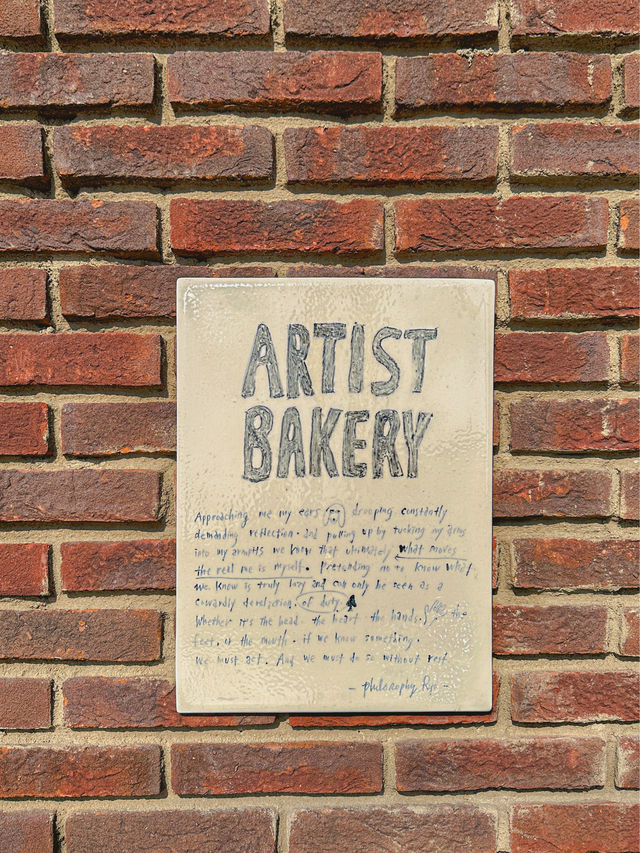 ARTIST
BAKERY
Approaching me my ears drooping constantly
demanding reflection. and pulling up by tucking my arms
into my armpits we know that ultimately what moves
the real me is myself. Pretending not to know what
we know is truly lazy and can only be seen as a
cowardly dereliction of duty
Whether it's the head. the heart the hands. the
feet, or the mouth. if we know something.
we must act. And we must do so without rest
- philosophy Ryo -